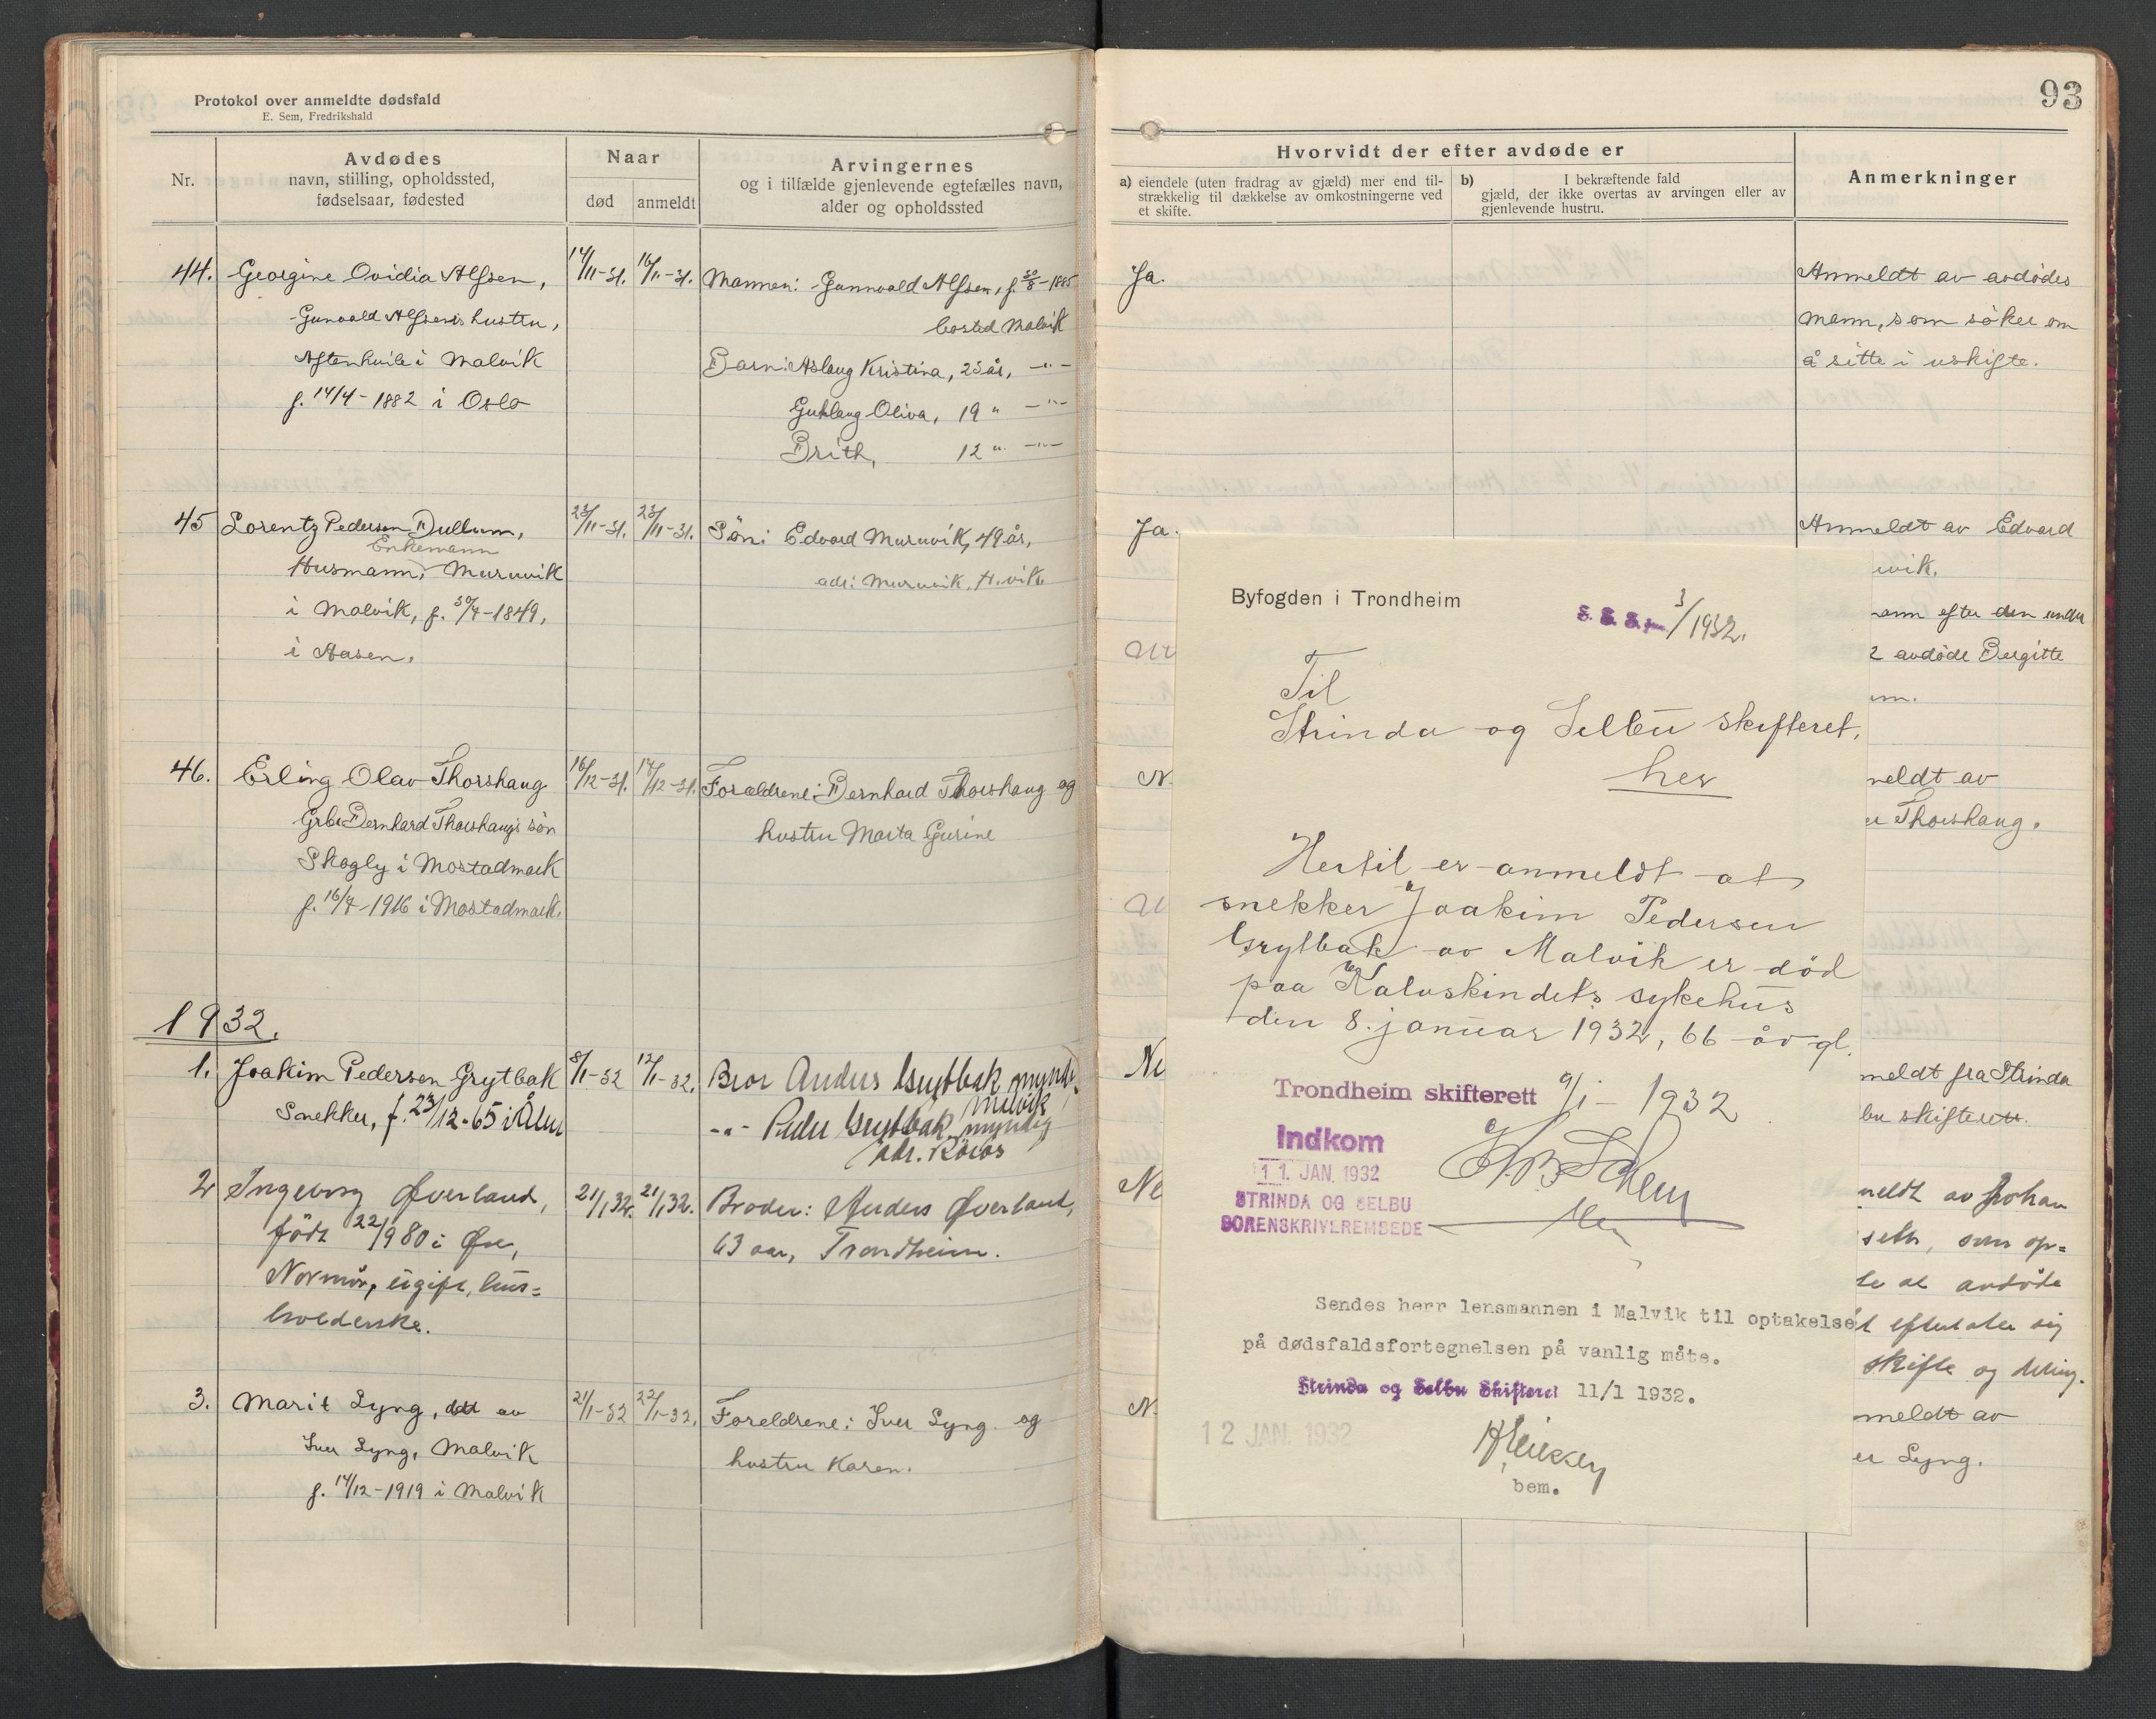 Protokol over anmeldte dødsfald
E. Sem, Fredrikshald
Nr.
Avdødes
navn, stilling, opholdssted,
fødselsaar, fødested
Naar
død
anmeldt
Arvingernes
og i tilfælde gjenlevende egtefælles navn,
alder og opholdssted
44. Georgine Ovidia Alfsen, 14/11-31. 16/11-31. Mannen: Gunnvald Alfsen, f. 30/8-1885
Gunvald Alfsens hustru, bosted Malvik
Aftenhvile i Malvik Barn: Aslaug Kristina, 23 år, -"-
f. 14/4-1882 i Oslo Gudlaug Oliva, 19 " -"-
Brith, 12 " -"-
45 Lorentz Pedersen Dullum, 23/11-31. 23/11-31. Søn: Edvard Muruvik, 49 år,
Enkemann
Husmann, Muruvik adr: Muruvik, H.vik.
i Malvik, f. 30/4-1849,
i Aasen.
46. Erling Olav Thorshaug 16/12-31. 17/12-31. Forældrene: Bernhard Thorshaug og
Grbr Bernhard Thorshaugs søn hustru Marta Gurine
Skogly i Mostadmark
f. 16/4-1916 i Mostadmark.
1932.
1. Joakim Pedersen Grytbak 8/1-32 12/1-32. Bror Anders Grytbak myndi.
Malvik
Snekker, f. 23/12-65 i Ålen -"- Peder Grytbak myndig
adr. Röros
2 Ingeborg Øverland, 21/1 32. 21/1 32. Broder: Anders Øverland,
födt 22/9 80 i Øre, 63 aar, Trondheim.
Normör, ugift, hus=
holderske.
3. Marit Lyng, dtt av 21/1-32 22/1-32. Foreldrene: Iver Lyng og
Iver Lyng, Malvik hustru Karen.
f. 14/12-1919 i Malvik
93
Hvorvidt der efter avdøde er
a) eiendele (uten fradrag av gjæld) mer end til-
strækkelig til dækkelse av omkostningerne ved
et skifte.
b) I bekræftende fald
gjæld, der ikke overtas av arvingen eller av
gjenlevende hustru.
Anmerkninger
Ja. Anmeldt av avdødes
mann, som søker om
å sitte i uskifte.
Ja. Anmeldt av Edvard
uvik.
mann efter den under
2 avdøde Bergitte
um.
N. meldt av
er Thorshaug.
Ne meldt fra Strinda
bu skifterett.
Ne meldt av Johan
seth, som op=
te at avdøde
t efterlater sig
skifte og deling.
N. meldt av
er Lyng.
Byfogden i Trondheim
3/1932.
Til
Strinda og Selbu skifteret,
her
Hertil er anmeldt at
snekker Joakim Pedersen
Grytbak av Malvik er död
paa Kalvskindets sykehus
den 8. januar 1932, 66 år gl.
Trondheim skifterett 9/1 - 1932
Indkom
11. JAN. 1932
STRINDA OG SELBU
SORENSKRIVEREMBEDE
Sendes herr lensmannen i Malvik til optakelse
på dødsfaldsfortegnelsen på vanlig måte.
Strinda og Selbu Skifteret 11/1 1932.
12 JAN. 1932
bem.